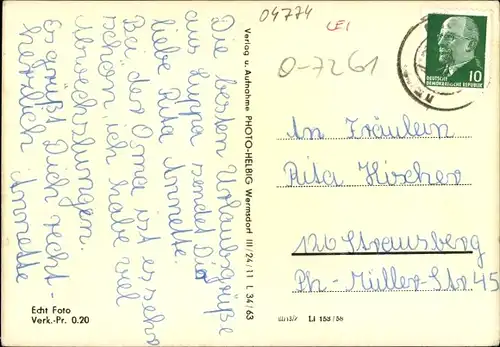 04774
LEI
0-7261
DEUTSCHE
DEMOKRATISCHE REPUBLIK
10
Die besten Urlaubsgrüße
aus Luppa sendet Dir
liebe Rita Annette.
Bei der Oma ist es sehr
schön, ich habe viel
Abwechslungen.
Es grüßt Dich recht-
herzlich Annette
Verlag u. Aufnahme PHOTO-HELBIG Wermsdorf III/24/11 L 34/63
An Fräulein
Rita Hirscher
120 Strausberg
Ph.-Müller-Str 45
Echt Foto
Verk.-Pr. 0.20
LI 153/58